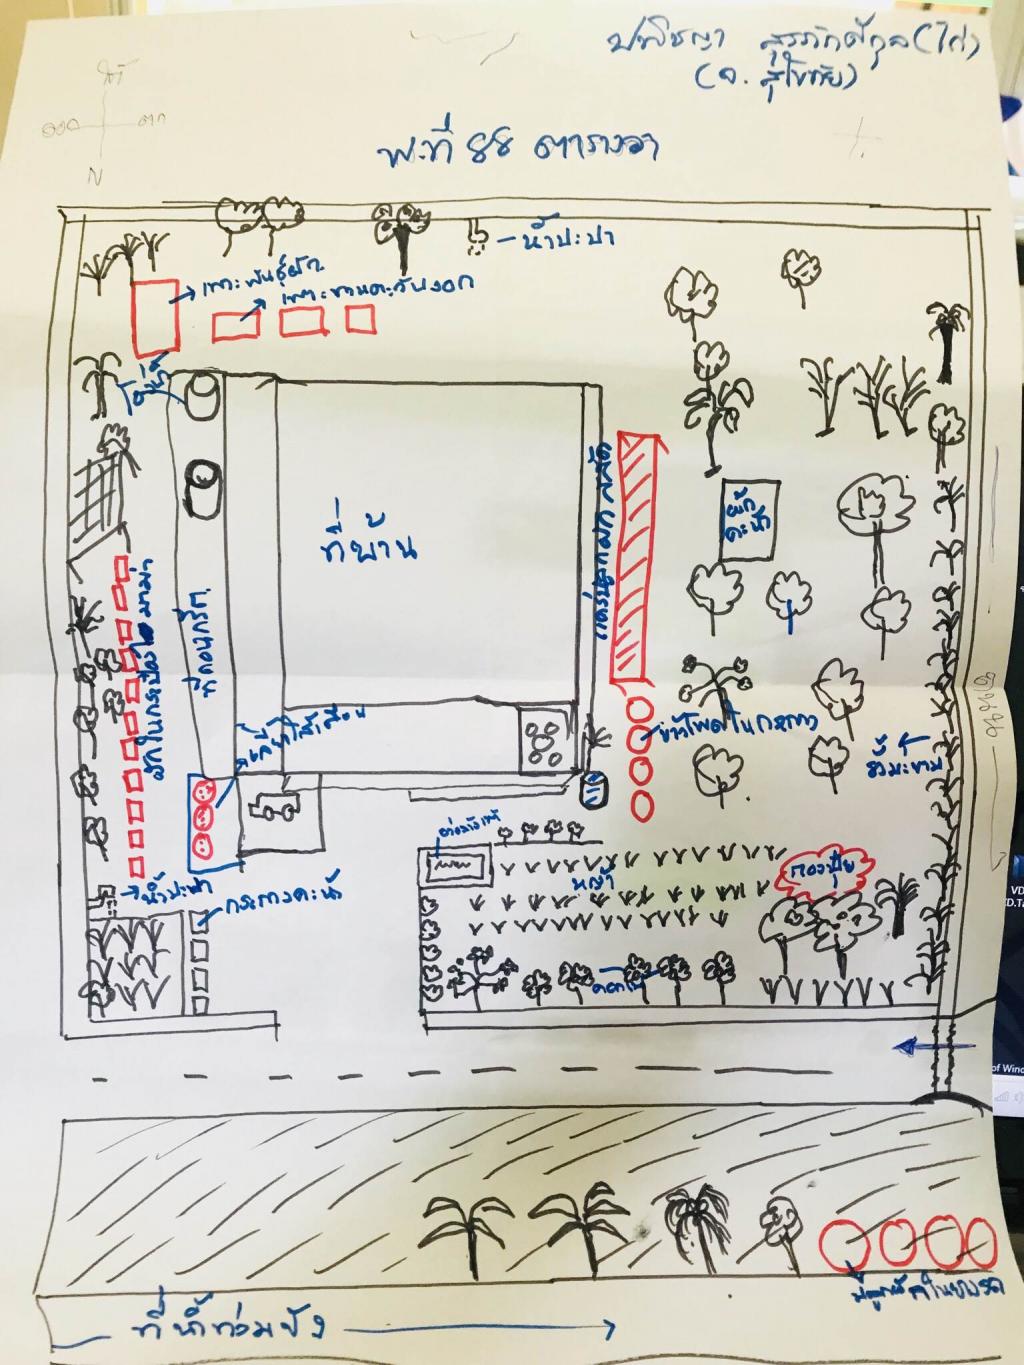 ปพิชญา สุรภักดีกุล (ไก่)
(จ. สุโขทัย)
ใต้
ออก
ตก
N
พ.ท ๘๘ ตารางวา
น้ำปะปา
เพาะพันธุ์ผัก
เพาะทานตะวันงอก
โอ่งน้ำ
ที่บ้าน
ผักคะน้า
แคร่ปลูกผักสลัด
ผักในกระป๋องมาม่า
ที่คอนกรีต
เลี้ยงไส้เดือน
ข้าวโพดในกระถาง
รั้วมะขาม
น้ำปะปา
กระถางคะน้า
หญ้า
กองปุ๋ย
ดอกไม้
ที่น้ำท่วมขัง
ปลูกผักในยางรถ
VD
D.Ta
of Windo